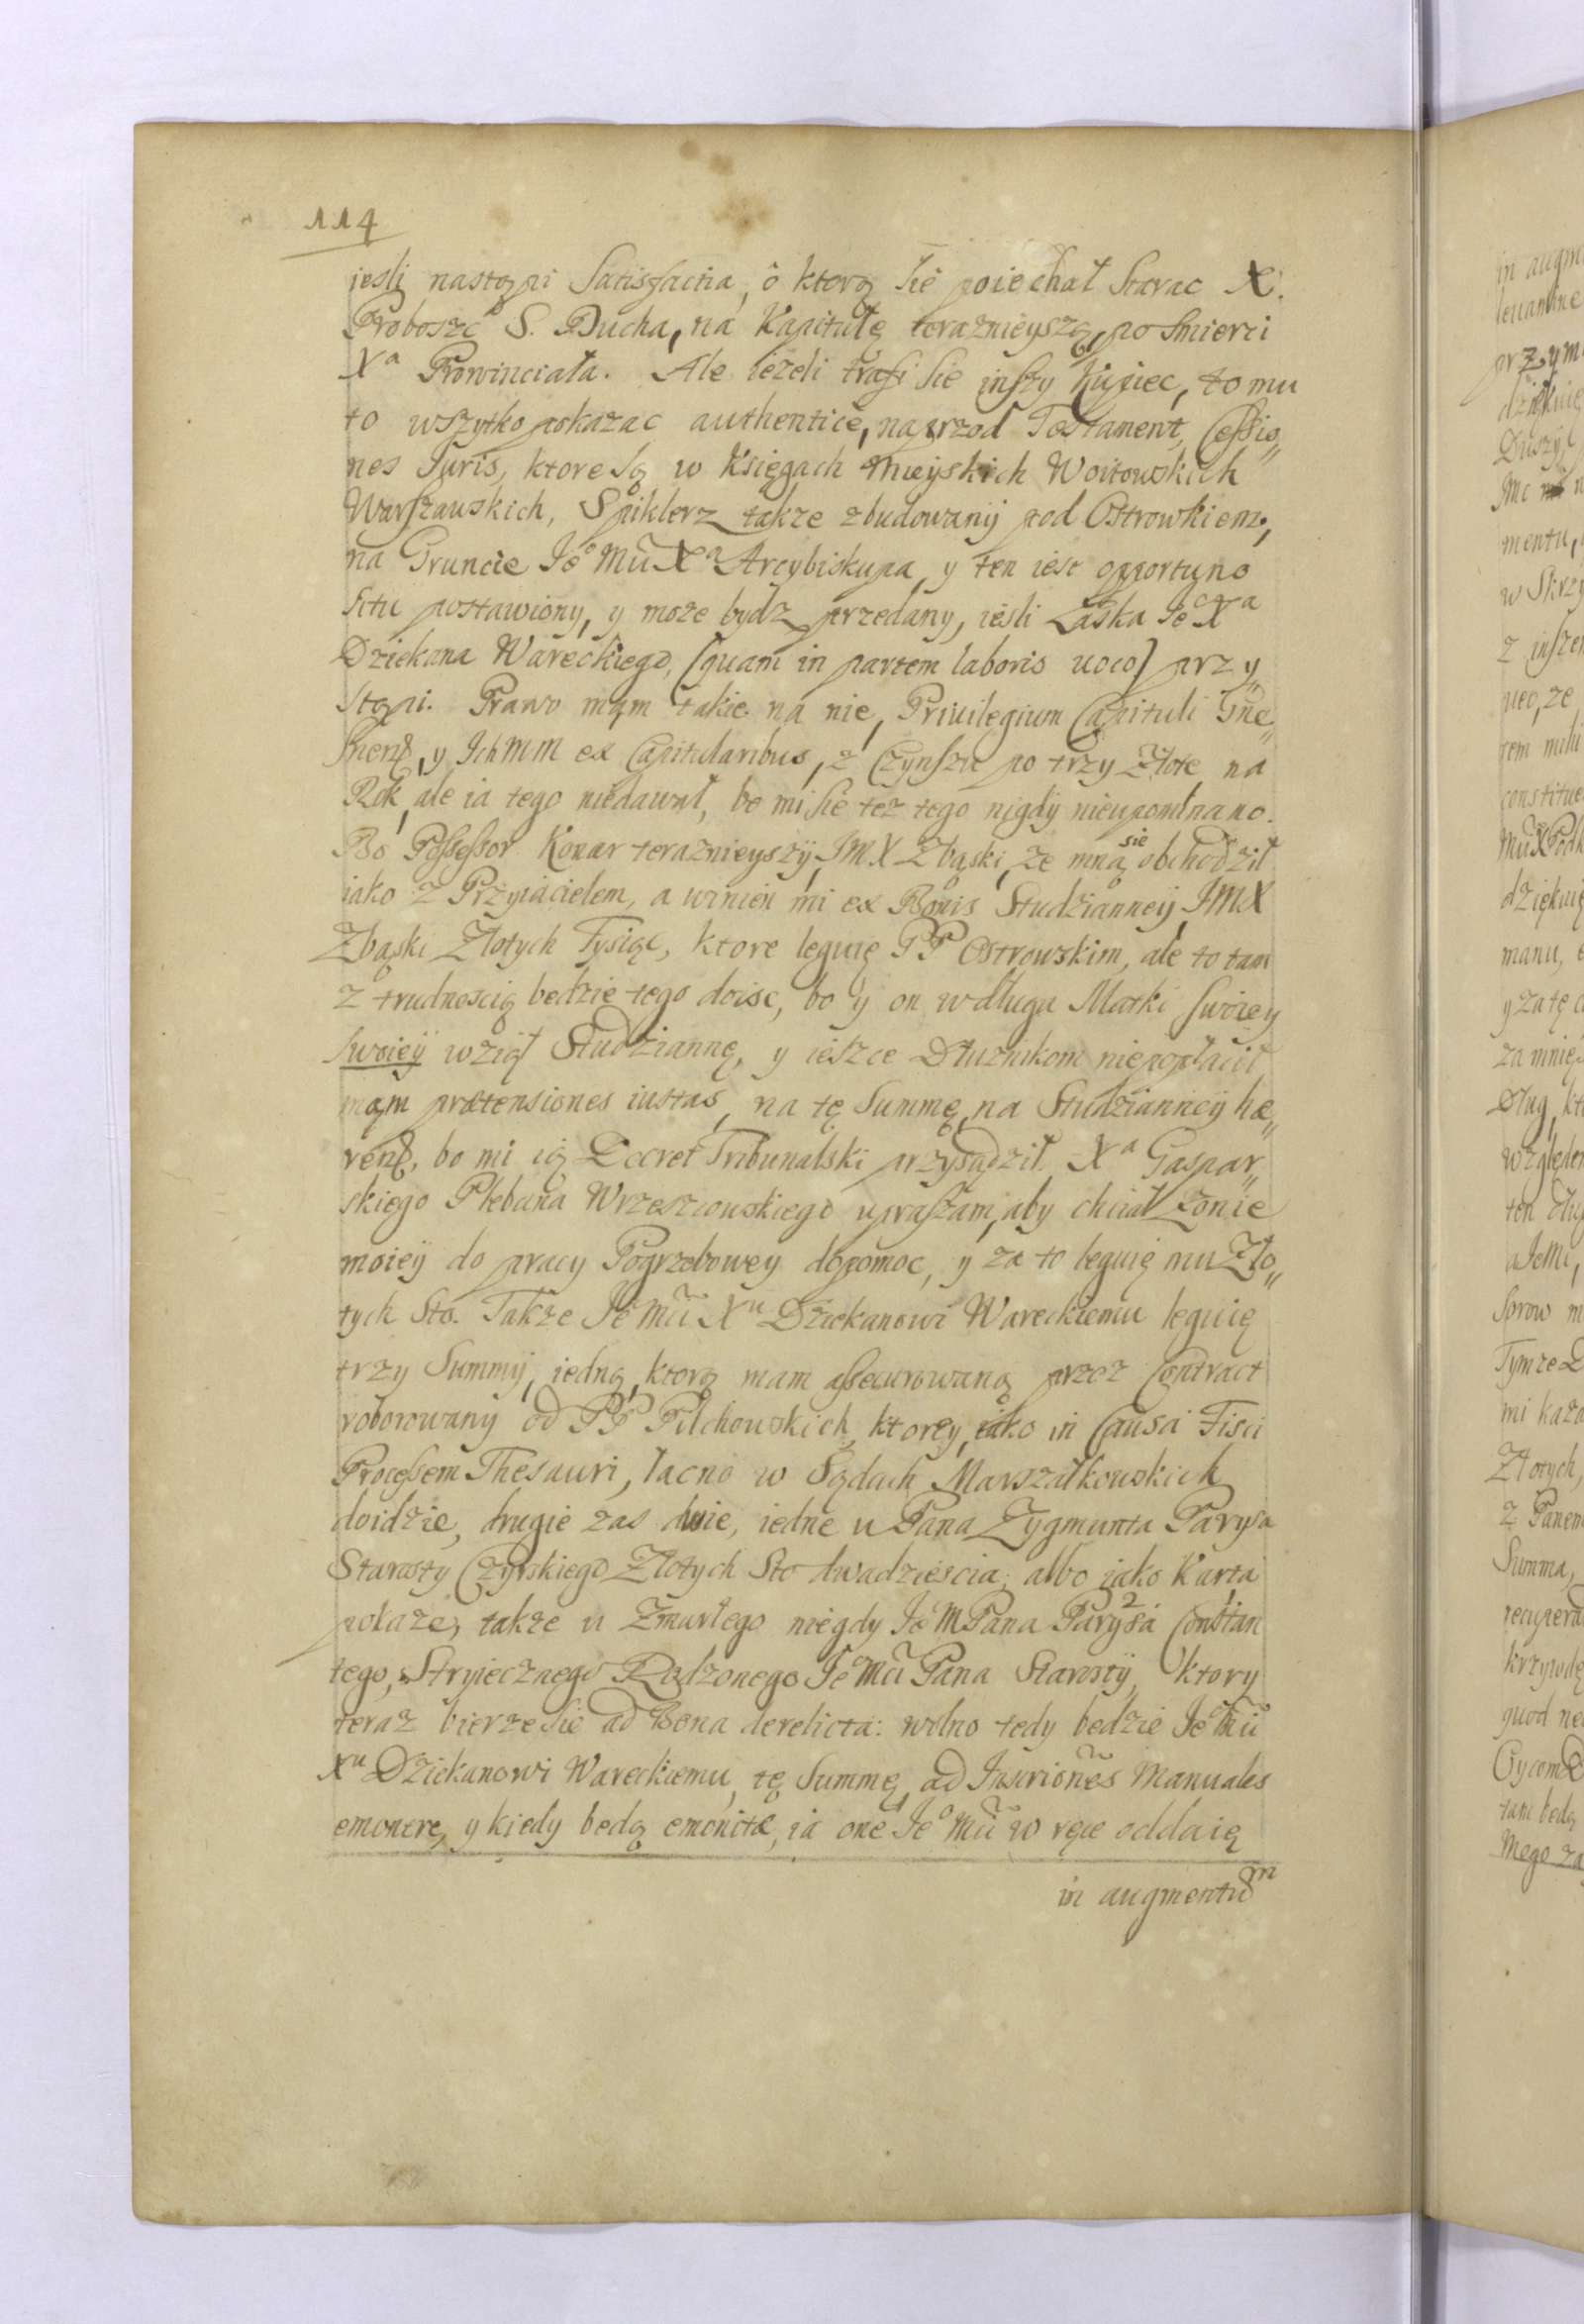 114
jesli nastąpi Satisfactia, ô ktorą Się poiechał Starac X.
Proboszc S. Ducha, na Kapitułę teraznieyszą, po Smierci
Xa Prowinciała. Ale ieżeli trafi Sie inszy Kupiec, to mu
to wszytko pokazac authenticè, naprzod Testament, Cessio„
nes Juris, ktore Są w Księgach Mieyskich Woitowskich
Warszawskich, Spiklerz także zbudowany pod Ostrowkiem,
na Gruncie Jeo Mci Xa Arcybiskupa, y ten iest opportuno
Situ postawiony, y może bydz przedany, iesli Łaska Je Xa
Dziekana Wareckiego, (quam in partem laboris uoco) przy„
stąpi. Prawo mąm takie na nie, Priuilegium Capituli Gne„
snens, y Ich MM ex Capitularibus, z Czynszu po trzy Złote na
Rok, ale ia tego niedawał, bo mi Sie tez tego nigdy nieupominano.
Bo Possessor Konar teraznieyszy, JMX Zbąski, ze mną sie obchodził
iako z Przyiacielem, a winien mi ex Bonis Studzianney JMX
Zbąski Złotych Tysiąc, ktore leguię PP Ostrowskim, ale to tam
z trudnoscią bedzie tego doisc, bo y on w długu Matki Swoiey
Swoiey wziął Studziannę, y ieszce Dłuznikom niepopłacił,
mąm prætensiones iustas, na tę Summę, na Studzianney hæ„
rens, bo mi ią Decret Tribunalski przysądził. Xa Gaspar„
skiego Plebana Wrzeszowskiego upraszam, aby chciał Zonie
moiey do pracy Pogrzebowey dopomoc, y za to leguię mu Zło„
tych Sto. Także Je Mci Xu Dziekanowi Wareckiemu leguię
trzy Summy, iedną, ktorą mam assecurowaną przez Contract
roborowany od PP Pilchowskich, ktorey, iako in Causa Fisci
Processem Thesauri, łacno w Sądach Marszałkowskich
doidzie, drugie zas dwie, iedne u Pana Zygmunta Parysa
Starosty Czyrskiego Złotych Sto dwadziescia, albo iako Karta
pokaze, także u Zmarłego niegdy Je M Pana Parysa Constan
tego, Stryiecznego Rodzonego Jeo Mci Pana Starosty, ktory
teraz bierze Sie ad Bona derelicta: wolno tedy bedzie Jeo Mci
Xu Dziekanowi Wareckiemu, tę Summę, ad Inscriones Manuales
emonere, y kiedy bedą emonitæ, ia one Jeo Mci w ręce oddaię
in augmentum